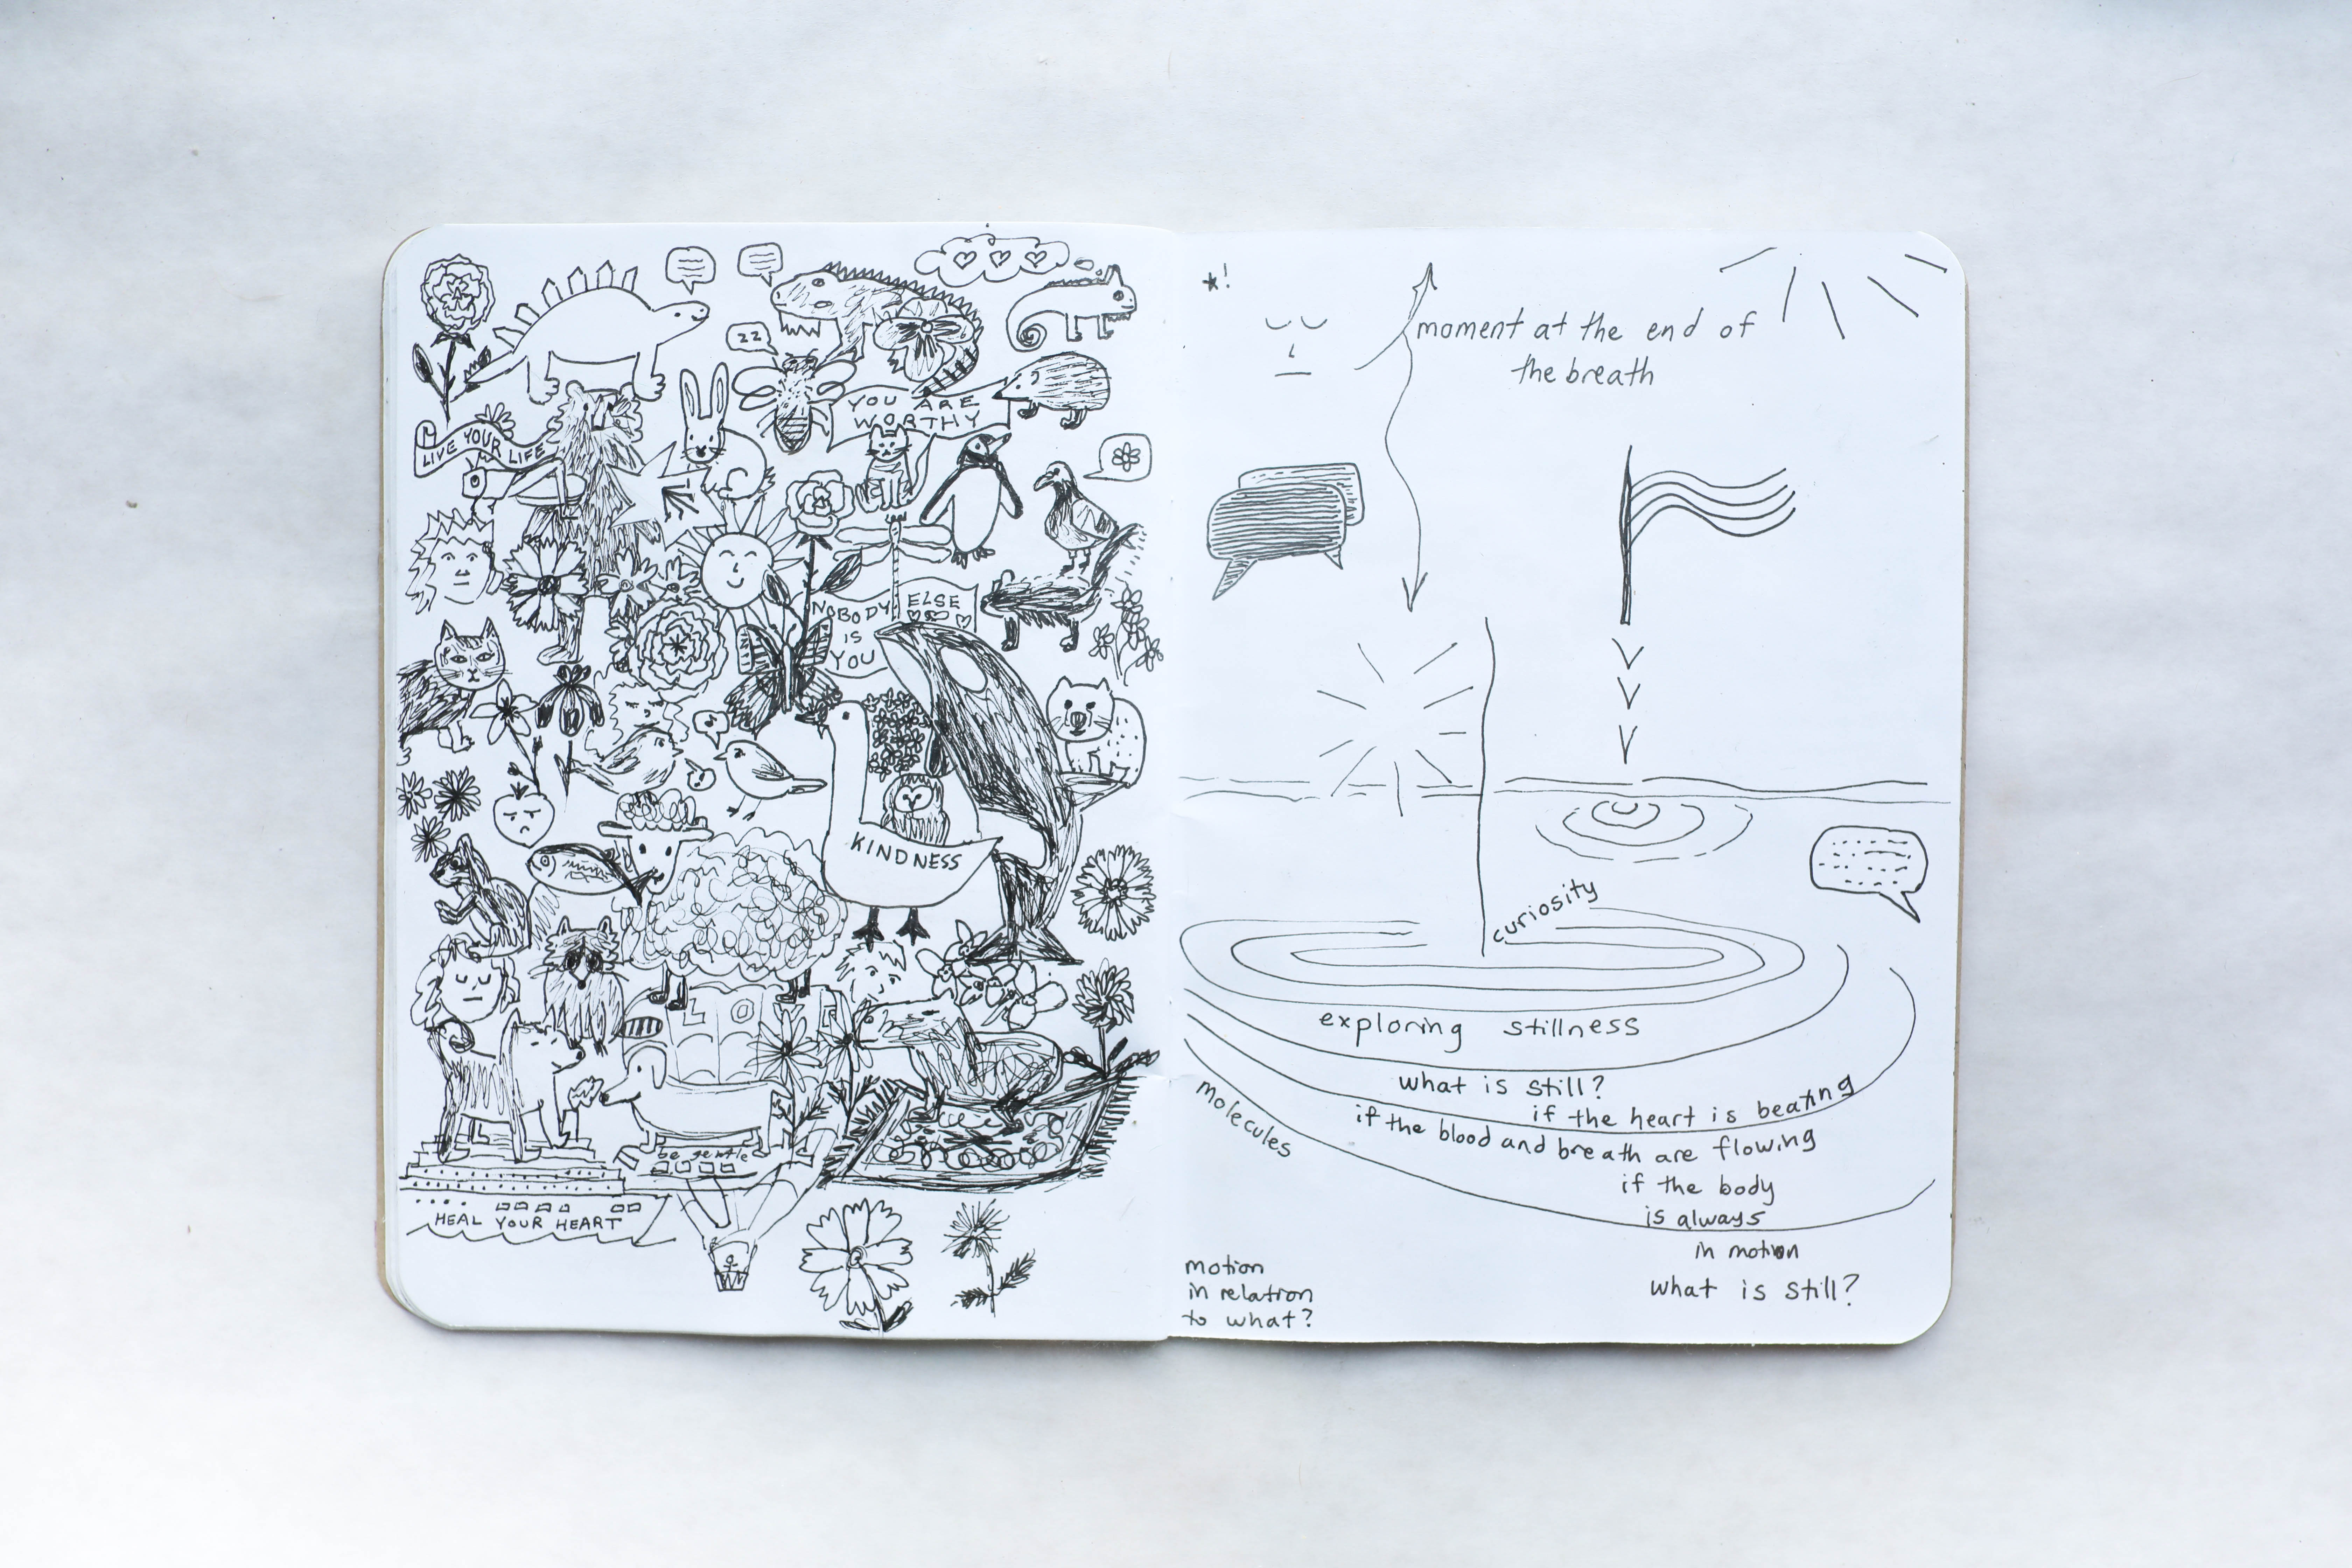 zz
YOU ARE
WORTHY
LIVE YOUR LIFE
NOBODY ELSE
IS
YOU
KINDNESS
LO
be gentle
HEAL YOUR HEART
*!
moment at the end of
the breath
curiosity
exploring stillness
what is still?
if the heart is beating
if the blood and breath are flowing
if the body
is always
in motion
what is still?
molecules
motion
in relation
to what?